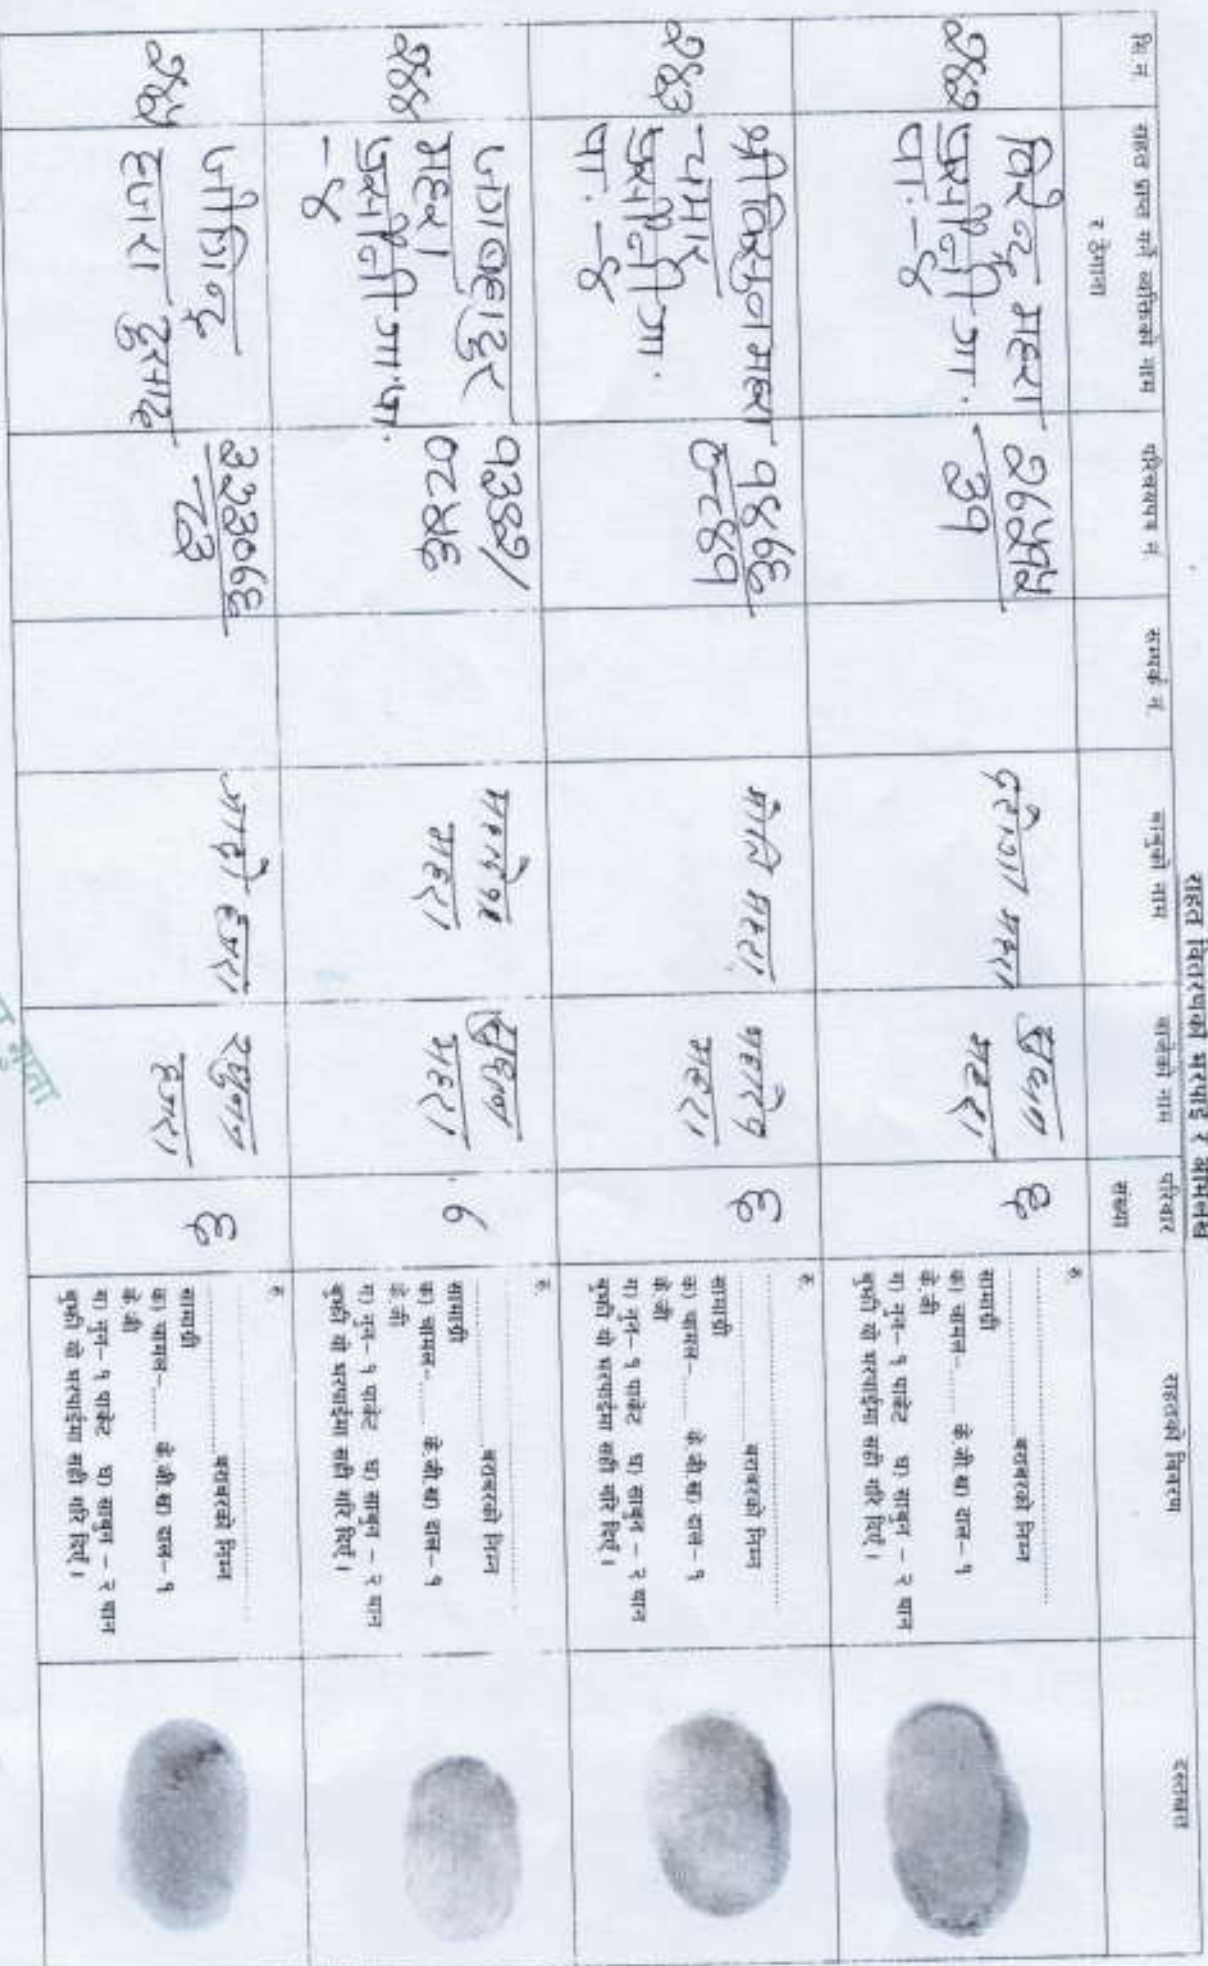 राहत वितरणको भरपाई र अभिलेख
सि.नं
राहत प्राप्त गर्ने व्यक्तिको नाम
र ठेगाना
परिचयपत्र नं.
सम्पर्क नं.
बाबुको नाम
बाजेको नाम
परिवार
संख्या
राहतको विवरण
दस्तखत
२४२
विरेन्द्र महरा
प्रसौनी गा.
पा.-४
२७५५५
३१
महरा
महरा
६
रु
बराबरको निम्न
सामाग्री
क) चामल-...... के.जी.ख) दाल- १
के.जी
ग) नुन- १ पाकेट घ) साबुन - २ थान
बुझी यो भरपाईमा सही गरि दिएँ।
२४३
श्री किसुन महरा
चमार
प्रसौनी गा.
पा.-४
१४७६
८४१
महरा
महरा
६
रु.
बराबरको निम्न
सामाग्री
क) चामल-...... के.जी.ख) दाल - १
के.जी
ग) नुन- १ पाकेट घ) साबुन - २ थान
बुझी यो भरपाईमा सही गरि दिएँ।
२४४
जंगबहादुर
महरा
प्रसौनी गा.पा.
-४
१३४२/
०८५६
महरा
महरा
७
रु.
बराबरको निम्न
सामाग्री
क) चामल-...... के.जी.ख) दाल- १
के.जी
ग) नुन- १ पाकेट घ) साबुन - २ थान
बुझी यो भरपाईमा सही गरि दिएँ।
२४५
हजरा दुसाध
३३३०७६
हजरा
हजरा
६
रु.
बराबरको निम्न
सामाग्री
क) चामल-...... के.जी.ख) दाल- १
के.जी
ग) नुन- १ पाकेट घ) साबुन - २ थान
बुझी यो भरपाईमा सही गरि दिएँ।
गुप्ता